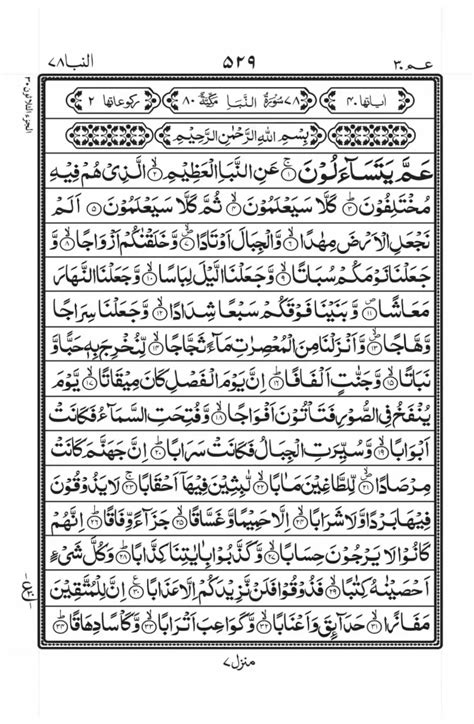 عـمّ ٣٠
٥٢٩
النبا ٧٨
الجزء الثلاثون ٣٠
اٰیاتھا ٤٠
٧٨ سُوْرَةُ النَّبَاِ مَكِّيَّةٌ ٨٠
رکوعاتھا ٢
بِسْمِ اللّٰهِ الرَّحْمٰنِ الرَّحِيْمِ
عَمَّ يَتَسَآءَلُوْنَ ۚ﴿١﴾ عَنِ النَّبَاِ الْعَظِيْمِ ۙ﴿٢﴾ الَّذِيْ هُمْ فِيْهِ
مُخْتَلِفُوْنَ ؕ﴿٣﴾ كَلَّا سَيَعْلَمُوْنَ ۙ﴿٤﴾ ثُمَّ كَلَّا سَيَعْلَمُوْنَ ﴿٥﴾ اَلَمْ
نَجْعَلِ الْاَرْضَ مِهٰدًا ۙ﴿٦﴾ وَّالْجِبَالَ اَوْتَادًا ۪ۙ﴿٧﴾ وَّخَلَقْنٰكُمْ اَزْوَاجًا ۙ﴿٨﴾
وَّجَعَلْنَا نَوْمَكُمْ سُبَاتًا ۙ﴿٩﴾ وَّجَعَلْنَا الَّيْلَ لِبَاسًا ۙ﴿١٠﴾ وَّجَعَلْنَا النَّهَارَ
مَعَاشًا ۪﴿١١﴾ وَّبَنَيْنَا فَوْقَكُمْ سَبْعًا شِدَادًا ۙ﴿١٢﴾ وَّجَعَلْنَا سِرَاجًا
وَّهَّاجًا ۪ۙ﴿١٣﴾ وَّاَنْزَلْنَا مِنَ الْمُعْصِرٰتِ مَآءً ثَجَّاجًا ۙ﴿١٤﴾ لِّنُخْرِجَ بِهٖ حَبًّا وَّ
نَبَاتًا ۙ﴿١٥﴾ وَّجَنّٰتٍ اَلْفَافًا ؕ﴿١٦﴾ اِنَّ يَوْمَ الْفَصْلِ كَانَ مِيْقَاتًا ۙ﴿١٧﴾ يَّوْمَ
يُنْفَخُ فِي الصُّوْرِ فَتَاْتُوْنَ اَفْوَاجًا ۙ﴿١٨﴾ وَّفُتِحَتِ السَّمَآءُ فَكَانَتْ
اَبْوَابًا ۙ﴿١٩﴾ وَّسُيِّرَتِ الْجِبَالُ فَكَانَتْ سَرَابًا ؕ﴿٢٠﴾ اِنَّ جَهَنَّمَ كَانَتْ
مِرْصَادًا ۪ۙ﴿٢١﴾ لِّلطَّاغِيْنَ مَاٰبًا ۙ﴿٢٢﴾ لّٰبِثِيْنَ فِيْهَاۤ اَحْقَابًا ۚ﴿٢٣﴾ لَا يَذُوْقُوْنَ
فِيْهَا بَرْدًا وَّلَا شَرَابًا ۙ﴿٢٤﴾ اِلَّا حَمِيْمًا وَّغَسَّاقًا ۙ﴿٢٥﴾ جَزَآءً وِّفَاقًا ؕ﴿٢٦﴾ اِنَّهُمْ
كَانُوْا لَا يَرْجُوْنَ حِسَابًا ۙ﴿٢٧﴾ وَّكَذَّبُوْا بِاٰيٰتِنَا كِذَّابًا ؕ﴿٢٨﴾ وَكُلَّ شَيْءٍ
اَحْصَيْنٰهُ كِتٰبًا ۙ﴿٢٩﴾ فَذُوْقُوْا فَلَنْ نَّزِيْدَكُمْ اِلَّا عَذَابًا ﴿٣٠﴾ اِنَّ لِلْمُتَّقِيْنَ
مَفَازًا ۙ﴿٣١﴾ حَدَآئِقَ وَاَعْنَابًا ۙ﴿٣٢﴾ وَّكَوَاعِبَ اَتْرَابًا ۙ﴿٣٣﴾ وَّكَاْسًا دِهَاقًا ؕ﴿٣٤﴾
منزل ٧